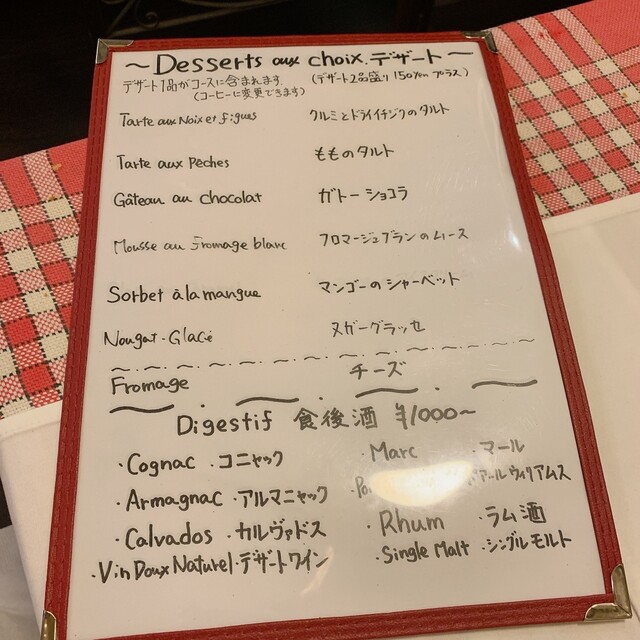 ~Desserts aux choix.デザート~
デザート1品がコースに含まれます. (デザート2品盛り 150yen プラス)
(コーヒーに変更できます)
Tarte aux Noix et figues クルミとドライイチジクのタルト
Tarte aux Pêches もものタルト
Gâteau au chocolat ガトーショコラ
Mousse au Fromage blanc フロマージュブランのムース
Sorbet à la mangue マンゴーのシャーベット
Nougat-Glacé ヌガーグラッセ
Fromage チーズ
Digestif 食後酒 ¥1000~
・Cognac ・コニャック ・Marc ・マール
・Armagnac ・アルマニャック アールウィリアムス
・Calvados ・カルヴァドス ・Rhum ・ラム酒
・Vin Doux Naturel・デザートワイン ・Single Malt ・シングルモルト